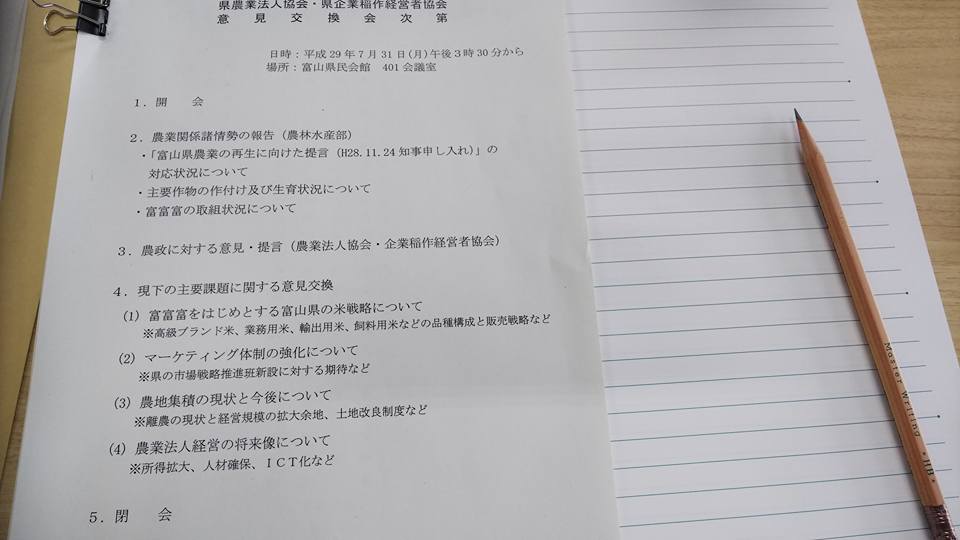 県農業法人協会・県企業稲作経営者協会
意見交換会次第
日時：平成29年7月31日(月)午後3時30分から
場所：富山県民会館　401会議室
1．開　会
2．農業関係諸情勢の報告（農林水産部）
・「富山県農業の再生に向けた提言（H28.11.24知事申し入れ）」の
対応状況について
・主要作物の作付け及び生育状況について
・富富富の取組状況について
3．農政に対する意見・提言（農業法人協会・企業稲作経営者協会）
4．現下の主要課題に関する意見交換
(1) 富富富をはじめとする富山県の米戦略について
※高級ブランド米、業務用米、輸出用米、飼料用米などの品種構成と販売戦略など
(2) マーケティング体制の強化について
※県の市場戦略推進班新設に対する期待など
(3) 農地集積の現状と今後について
※離農の現状と経営規模の拡大余地、土地改良制度など
(4) 農業法人経営の将来像について
※所得拡大、人材確保、ＩＣＴ化など
5．閉　会
Master Writing